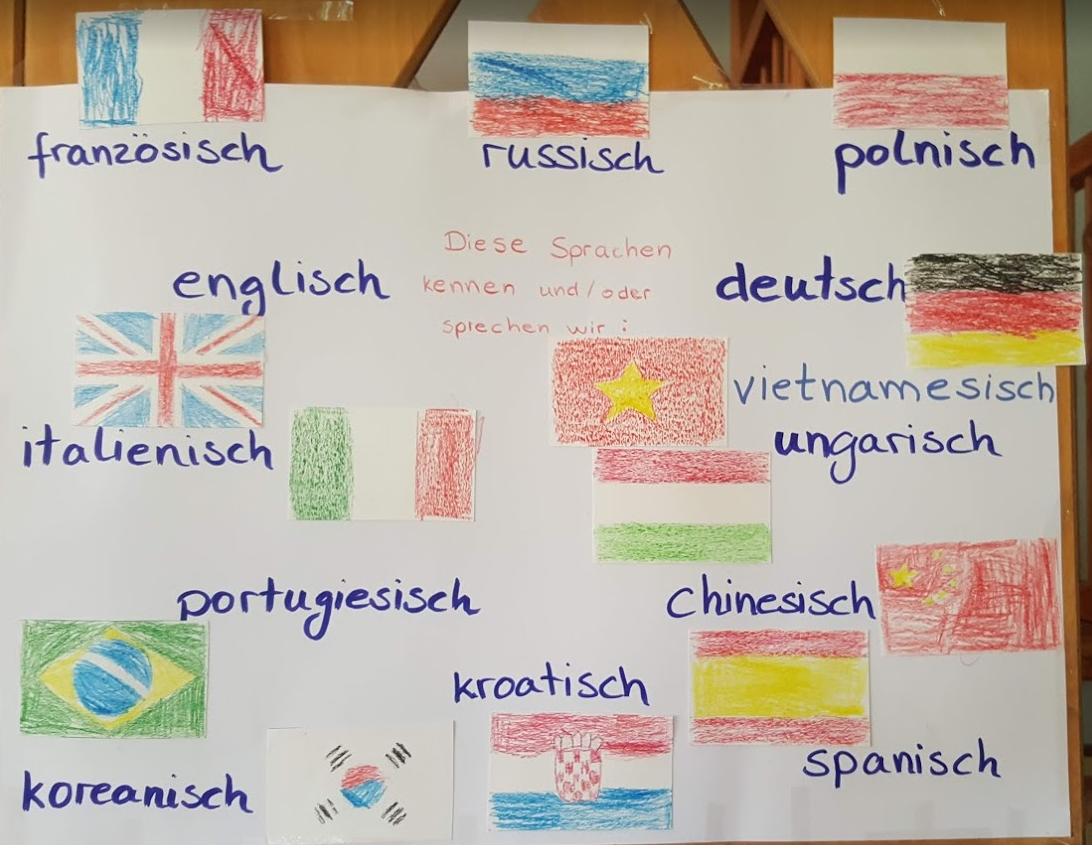 französisch
russisch
polnisch
Diese Sprachen
kennen und/oder
sprechen wir:
englisch
deutsch
vietnamesisch
italienisch
ungarisch
portugiesisch
Chinesisch
kroatisch
spanisch
koreanisch